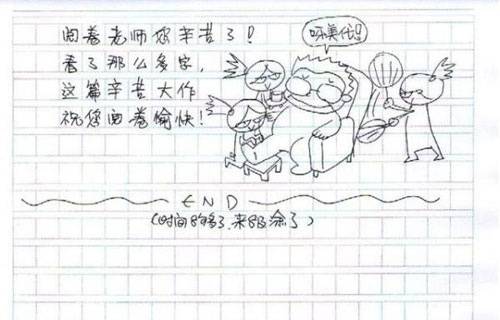 阅卷老师您辛苦了!
看了那么多字,
这篇辛苦大作
祝您阅卷愉快!
END
(时间8够了,来8及涂了)